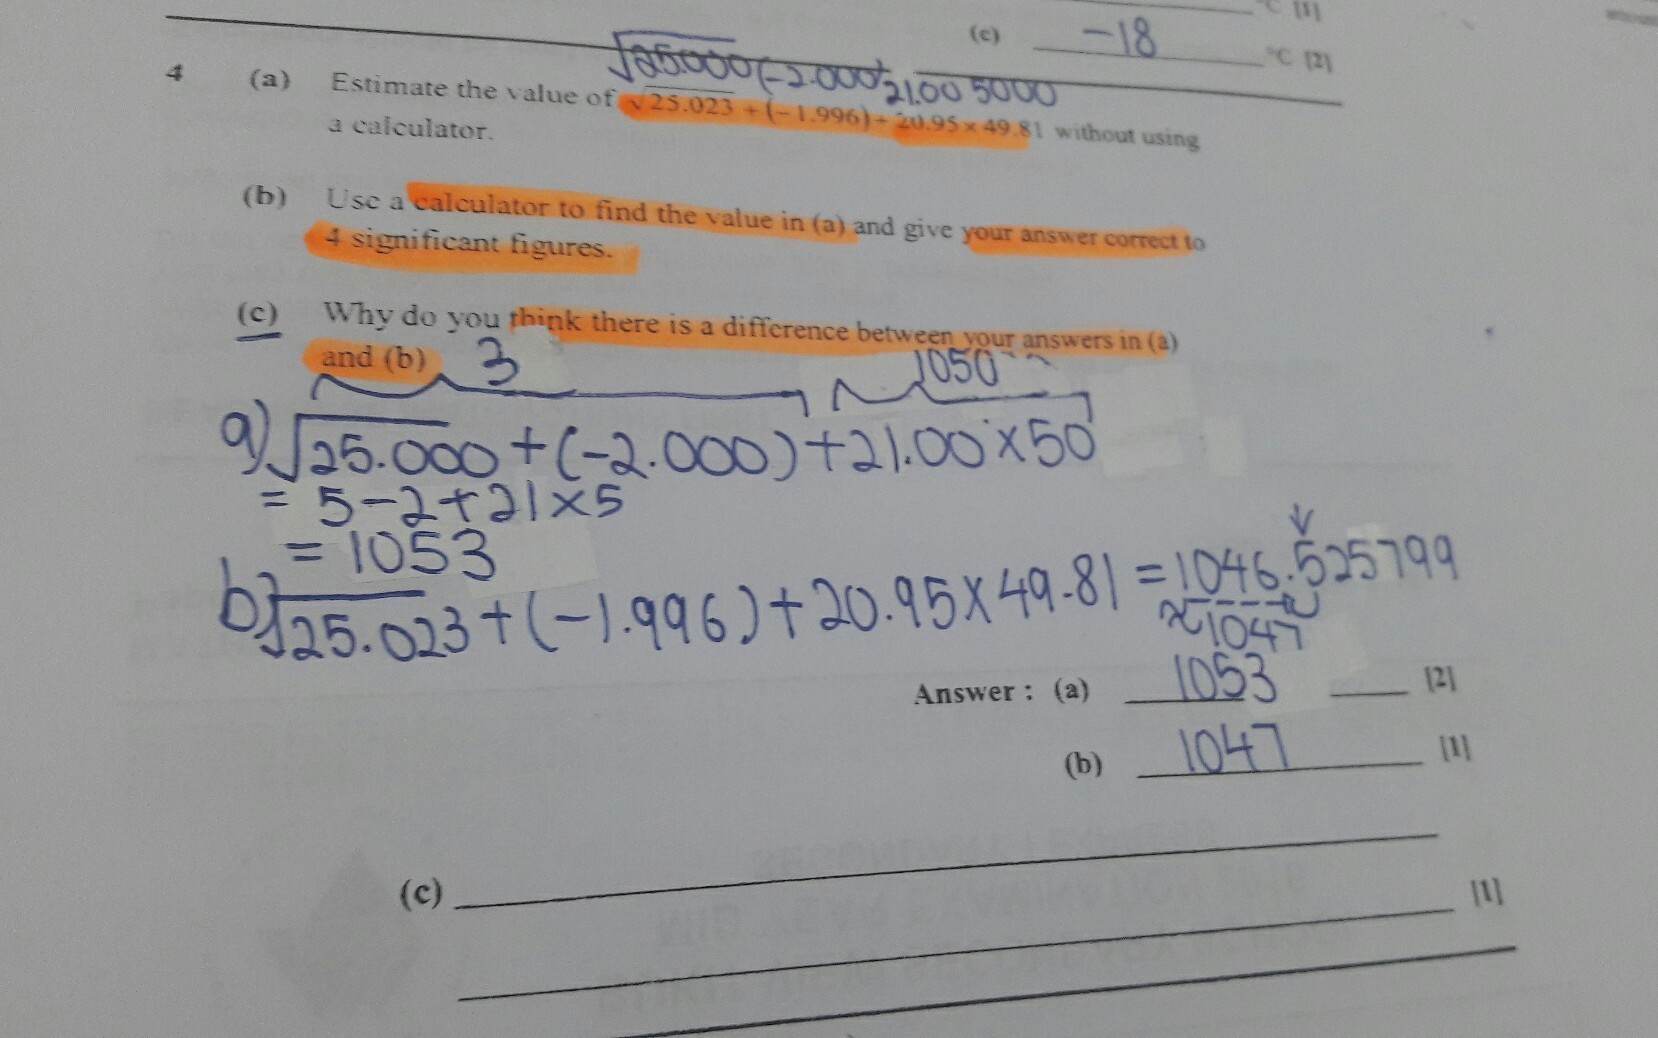 °C [1]
(c) -18 °C [2]
√25.000 (-2.000) 21.00 5000
4 (a) Estimate the value of √25.023 + (-1.996) + 20.95 × 49.81 without using
a calculator.
(b) Use a calculator to find the value in (a) and give your answer correct to
4 significant figures.
(c) Why do you think there is a difference between your answers in (a)
and (b)
3 1050
a) √25.000 + (-2.000) + 21.00 × 50
= 5 - 2 + 21 × 5
= 1053
b) √25.023 + (-1.996) + 20.95 × 49.81 = 1046.525799
≈ 1047
Answer : (a) 1053 [2]
(b) 1047 [1]
(c)
[1]